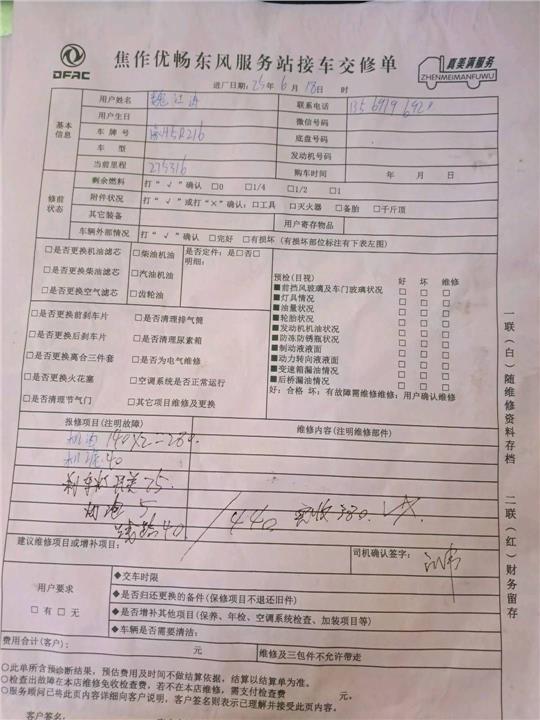 DFAC
焦作优畅东风服务站接车交修单
真美满服务
ZHENMEIMANFUWU
进厂日期：25年6月18日 时
基本信息
用户姓名 联系电话
用户生日 微信号码
车牌号 H5R216 底盘号码
车型 发动机号码
当前里程 275316 购车时间 年 月 日
修前状态
剩余燃料 打“√”确认 □0 □1/4 □1/2 □1
附件状况 打“√”或打“×”确认：□工具 □灭火器 □备胎 □千斤顶
其它装备 用户寄存物品
车辆外部情况 打“√”确认 □完好 □有损坏（有损坏部位标注有下表左图）
□是否更换机油滤芯 □柴油机油 是否定件：是□否□
明细：
□是否更换柴油滤芯 □汽油机油
□是否更换空气滤芯 □齿轮油
□是否更换前刹车片 □是否清理排气筒
□是否更换后刹车片 □是否清理尿素箱
□是否更换离合三件套 □是否为电气维修
□是否更换火花塞 □空调系统是否正常运行
□是否清理节气门 □其它项目维修及更换
预检（目视） 好 坏 维修
■前挡风玻璃及车门玻璃状况 □ □ □
■灯具情况 □ □ □
■油量状况 □ □ □
■轮胎状况 □ □ □
■发动机机油状况 □ □ □
■防冻防锈瓶状况 □ □ □
■制动液液面 □ □ □
■动力转向液液面 □ □ □
■变速箱漏油情况 □ □ □
■后桥漏油情况 □ □ □
好：合格 坏：有故障需维修维修：用户确认维修
报修项目（注明故障） 维修内容（注明维修部件）
机油 140×2=280.
机滤 40
刹车灯开关 75.
5
40 / 440 实收 380.
建议维修项目或增补项目： 司机确认签字：
用户要求
□有 □无
◆交车时限
◆是否归还更换的备件（保修项目不退还旧件）
◆是否增补其他项目（保养、年检、空调系统检查、加装项目等）
◆车辆是否需要清洁：
费用合计（客户）： 元 维修及三包件不允许带走
○此单所含预诊断结果，预估费用及时间不做结算依据，结算以结算单为准。
○检查出故障在本店维修免收检查费，若不在本店维修，需支付检查费 元。
○服务顾问已将此页内容详细向客户说明，客户签名则表示已理解并接受此页内容。
客户签名：
一联（白）随维修资料存档
二联（红）财务留存